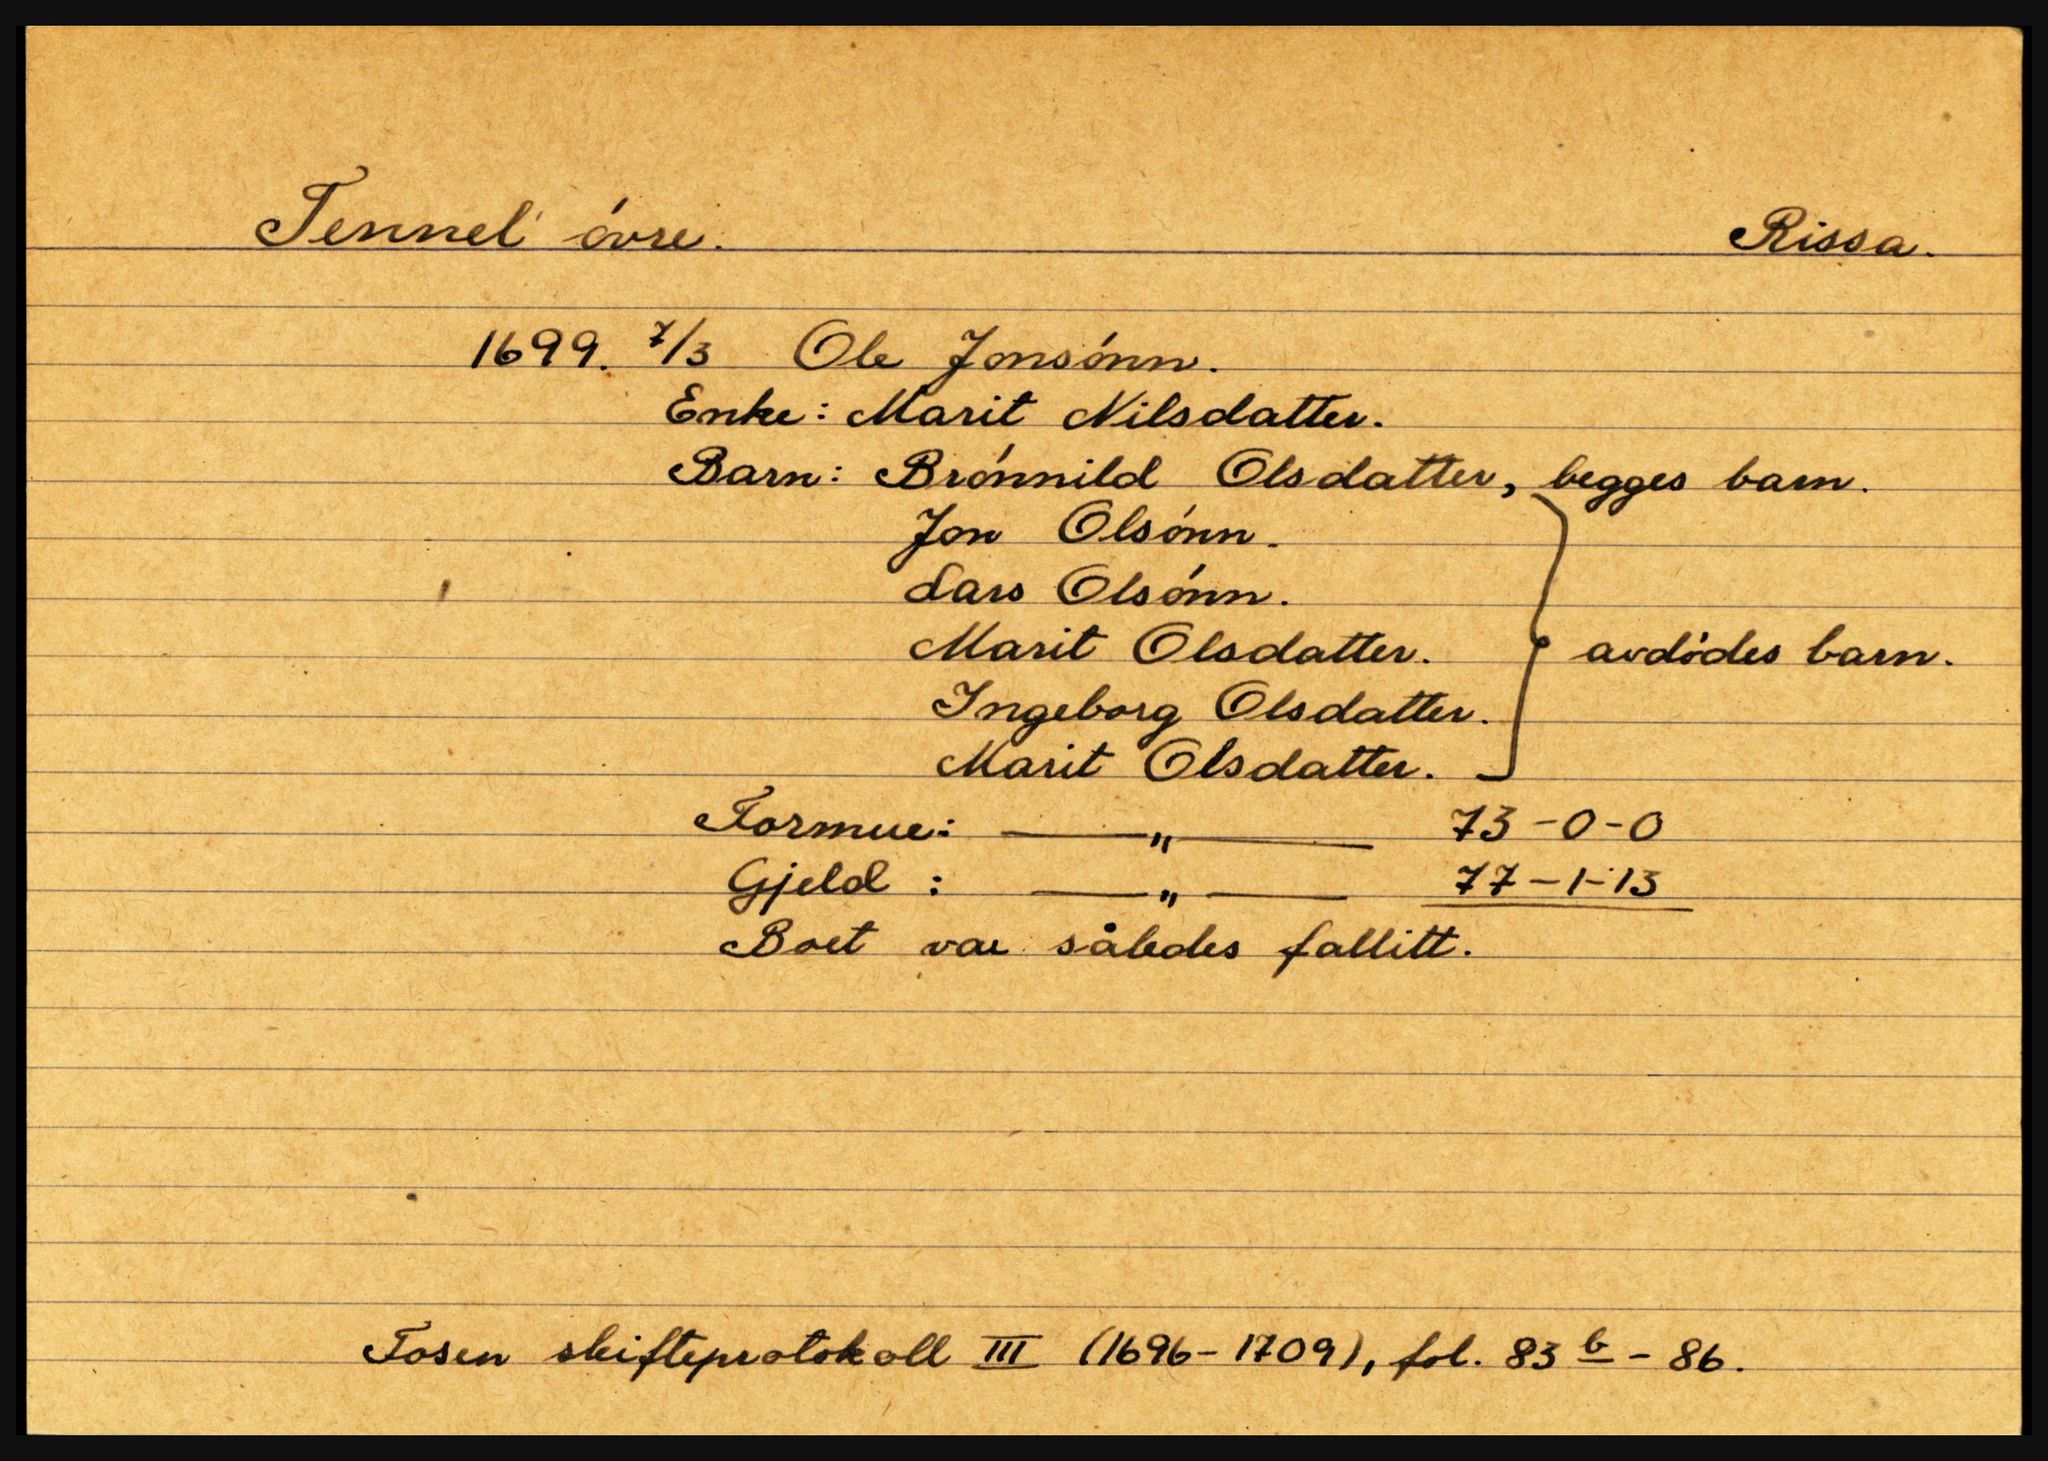 Tennel óvre. Rissa.
1699. 7/3 Ole Jonsónn.
Enke: Marit Nilsdatter.
Barn: Brónnild Olsdatter, begges barn.
Jon Olsónn.
Lars Olsónn.
Marit Olsdatter. } avdódes barn.
Ingeborg Olsdatter.
Marit Olsdatter.
Formue: —„— 73-0-0
Gjeld : —„— 77-1-13
Boet var således fallitt.
Fosen skifteprotokoll III (1696-1709), fol. 83 b - 86.